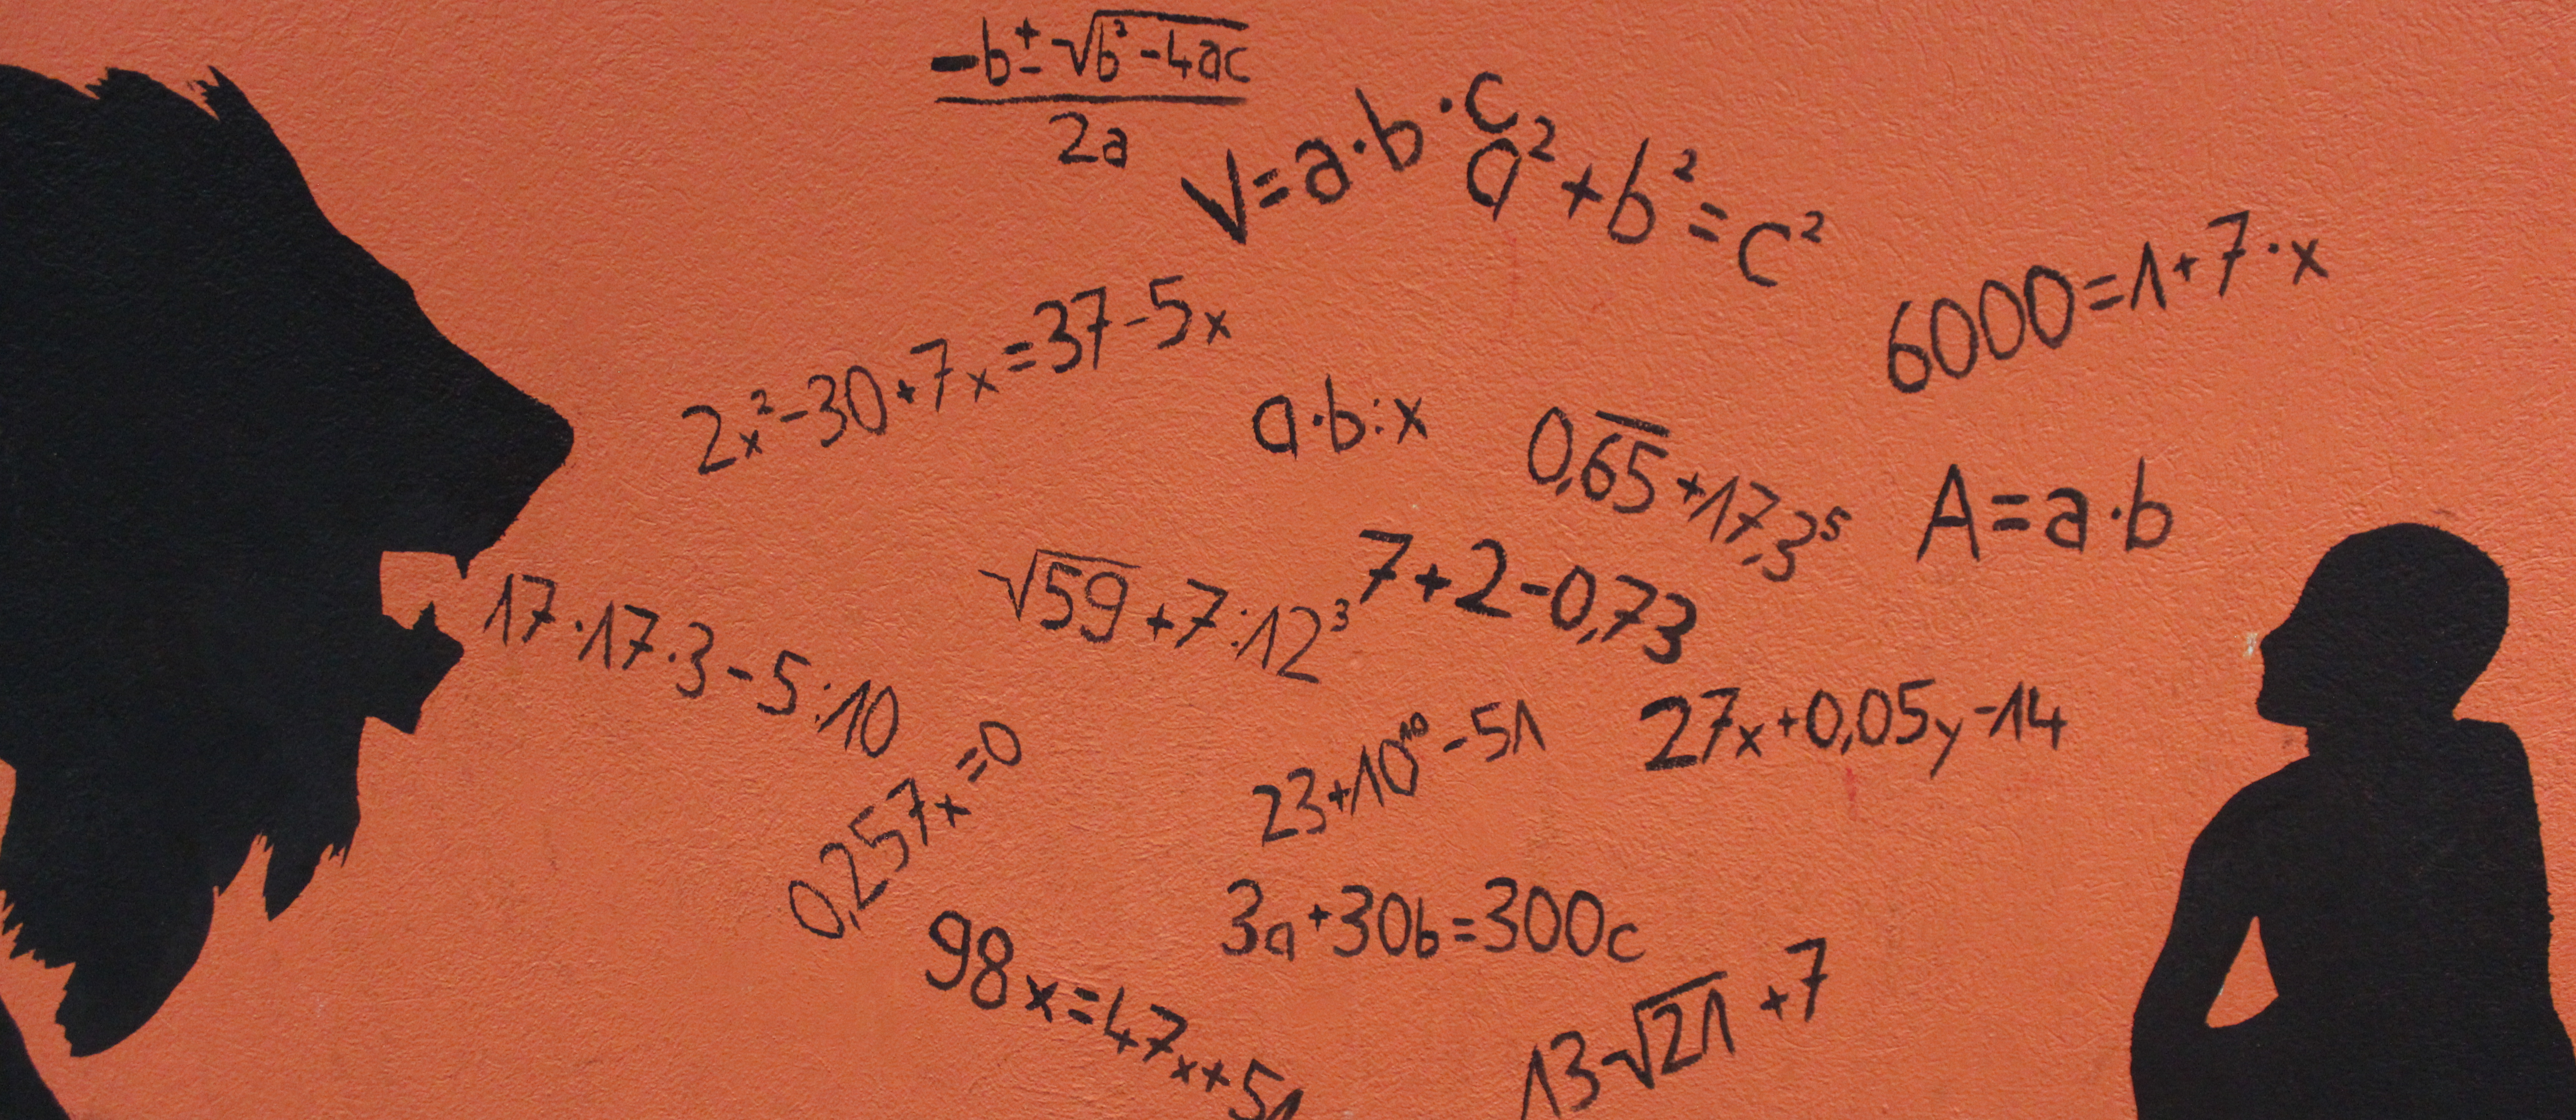 -b±√b²-4ac
2a
V=a·b·c
a²+b²=c²
6000=1+7·x
2x²-30+7x=37-5x
a·b:x
0,6̅5̅+17,3⁵
A=a·b
17·17·3-5:10
√59+7:12³
7+2-0,73
0,257x=0
23+10¹⁰-51
27x+0,05y-14
3a+30b=300c
98x=47x+51
13-√21+7